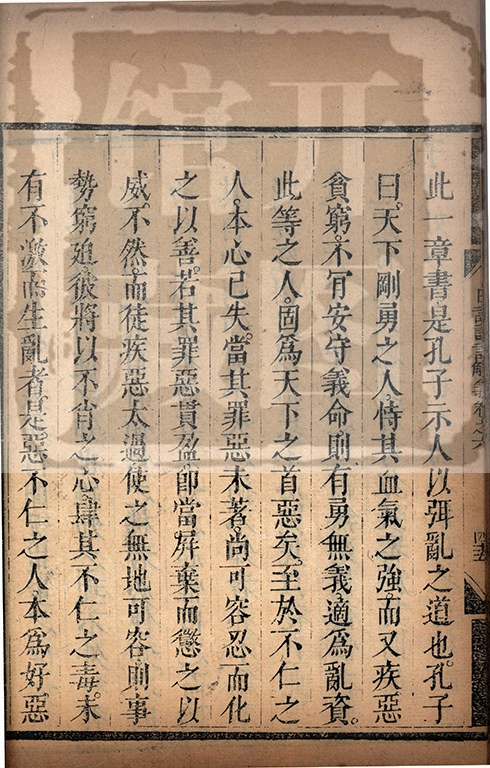 此一章書是孔子示人以弭亂之道也。孔子
曰。天下剛勇之人。恃其血氣之強。而又疾惡
貧窮。不肯安守義命。則有勇無義。適爲亂資。
此等之人。固爲天下之首惡矣。至於不仁之
人。本心已失。當其罪惡未著。尚可容忍而化
之以善。若其罪惡貫盈。卽當屏棄而懲之以
威。不然。而徒疾惡太過。使之無地可容。則事
勢窮迫。彼將以不肖之心。肆其不仁之毒。未
有不激而生亂者。是惡不仁之人。本爲好惡
日講四書解義卷之六
四五